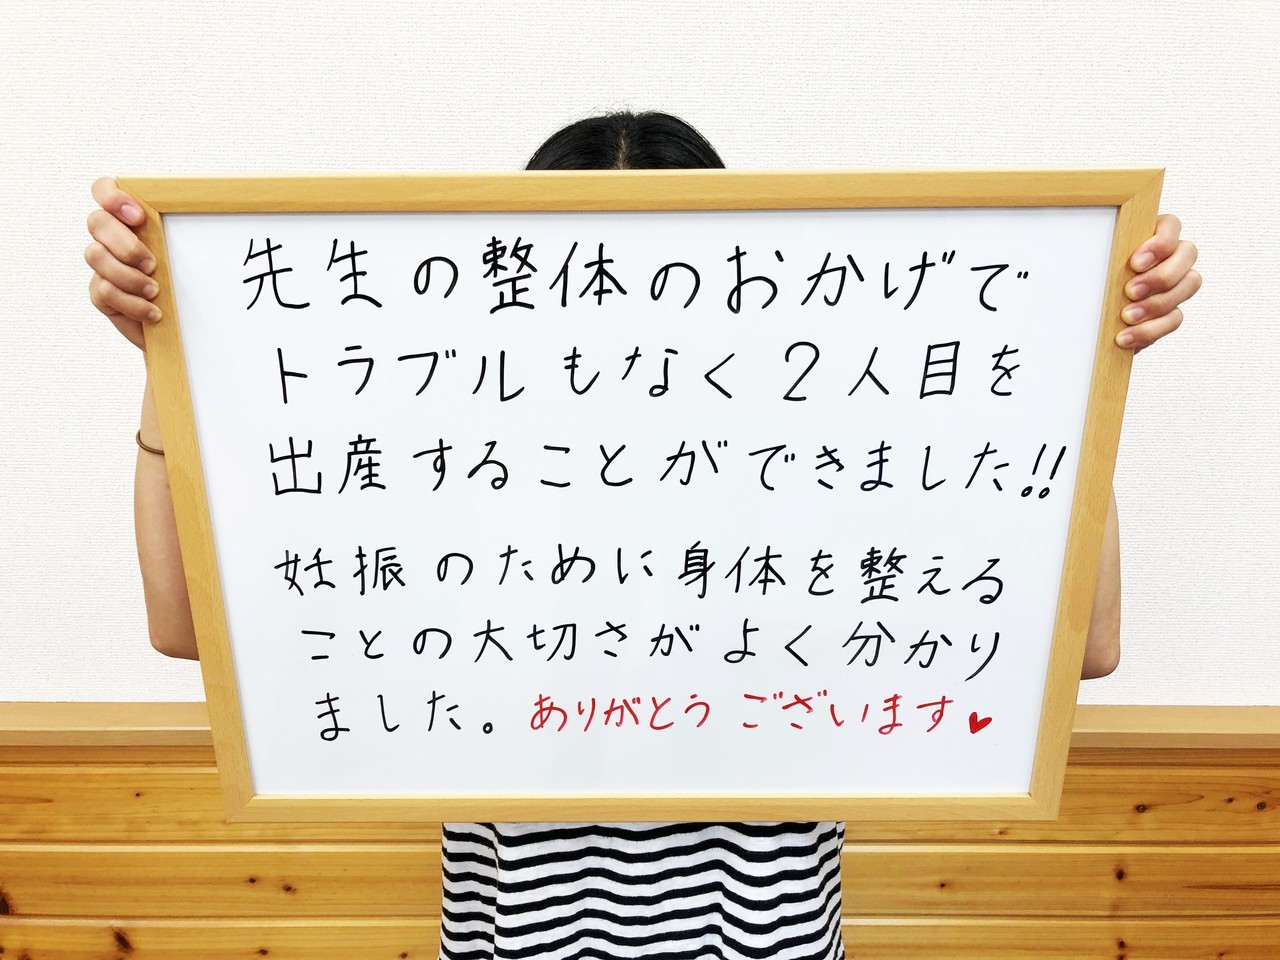 先生の整体のおかげで
トラブルもなく2人目を
出産することができました!!
妊振のために身体を整える
ことの大切さがよく分かり
ました。ありがとうございます♥